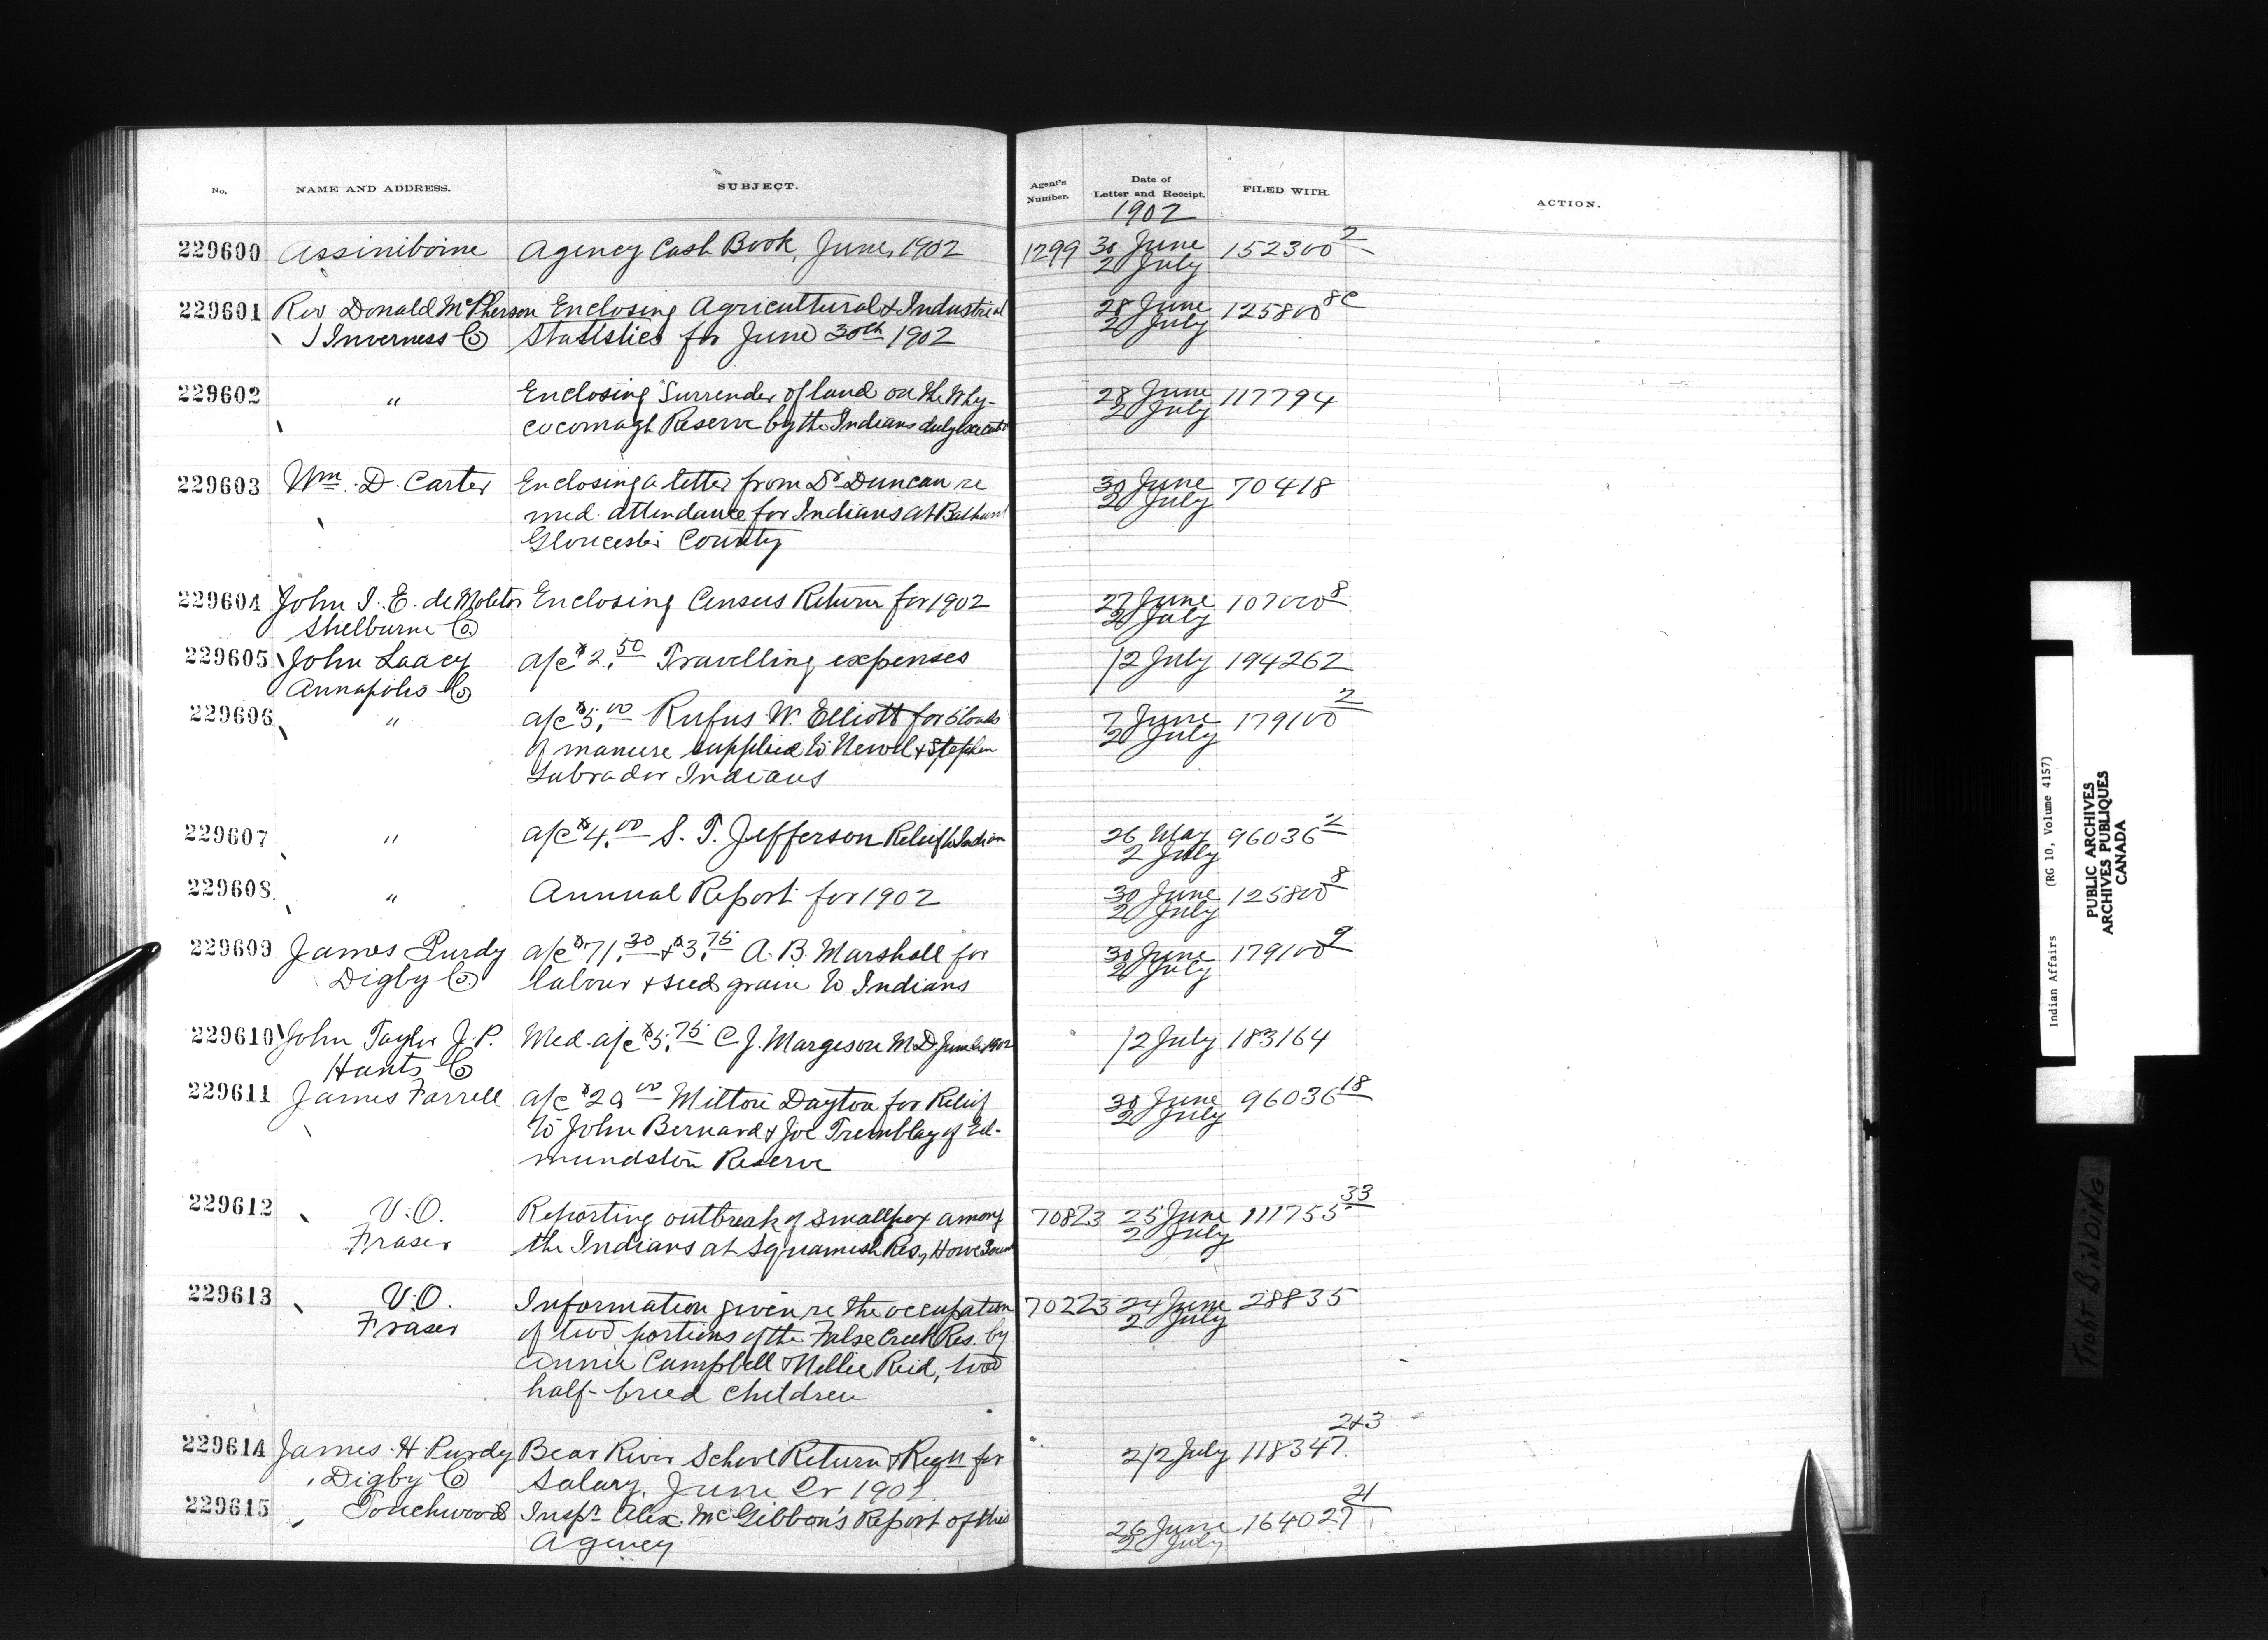 No. NAME AND ADDRESS. SUBJECT. Agent's Number. Date of Letter and Receipt. FILED WITH. ACTION.
1902
229600 Assiniboine Agency Cash Book, June, 1902 1299 30 June 152300 2
2 July
229601 Rev Donald McPherson Enclosing Agricultural & Industrial 28 June 125800 8c
Inverness Co Statistics for June 30th 1902 2 July
229602 " Enclosing Surrender of land on the Why- 28 June 117794
cocomagh Reserve by the Indians duly executed 2 July
229603 Wm. D. Carter Enclosing a letter from Dr Duncan re 30 June 70418
med. attendance for Indians at Bathurst 2 July
Gloucester County
229604 John J. E. de Molitor Enclosing Census Return for 1902 27 June 107000 8
Shelburne Co. 2 July
229605 John Lacey a/c $2.50 Travelling expenses /2 July 194262
Annapolis Co
229606 " a/c $5.00 Rufus W. Elliott for 5 loads 7 June 179100 2
of manure supplied to Newel & Stephen 2 July
Labrador Indians
229607 " a/c $4.00 S. T. Jefferson Relief to Indian 26 May 96036 2
2 July
229608 " Annual Report for 1902 30 June 125800 8
2 July
229609 James Purdy a/c $71.30 & $3.75 A. B. Marshall for 30 June 179100 9
Digby Co labour & seed grain to Indians 2 July
229610 John Taylor J.P. Med. a/c $5.75 C. J. Margeson M.D. June Qr 1902 /2 July 183164
Hants Co
229611 James Farrell a/c $20.00 Milton Dayton for Relief 30 June 96036 18
to John Bernard & Joe Tremblay of Ed- 2 July
mundston Reserve
229612 V.O. Reporting outbreak of Smallpox among 70823 25 June 111755 33
Fraser the Indians at Squamish Res, Howe Sound 2 July
229613 V.O. Information given re the occupation 70223 24 June 28835
Fraser of two portions of the False Creek Res. by 2 July
Annie Campbell & Nellie Reid, two
half-breed children
229614 James H Purdy Bear River School Return & Reqn for 2/2 July 118347 2&3
Digby Co Salary, June Qr 1902
229615 Touchwood Inspr. Alex. McGibbon's Report of this 26 June 164027 21
Agency 2 July
Indian Affairs (RG 10, Volume 4157)
PUBLIC ARCHIVES
ARCHIVES PUBLIQUES
CANADA
TIGHT BINDING